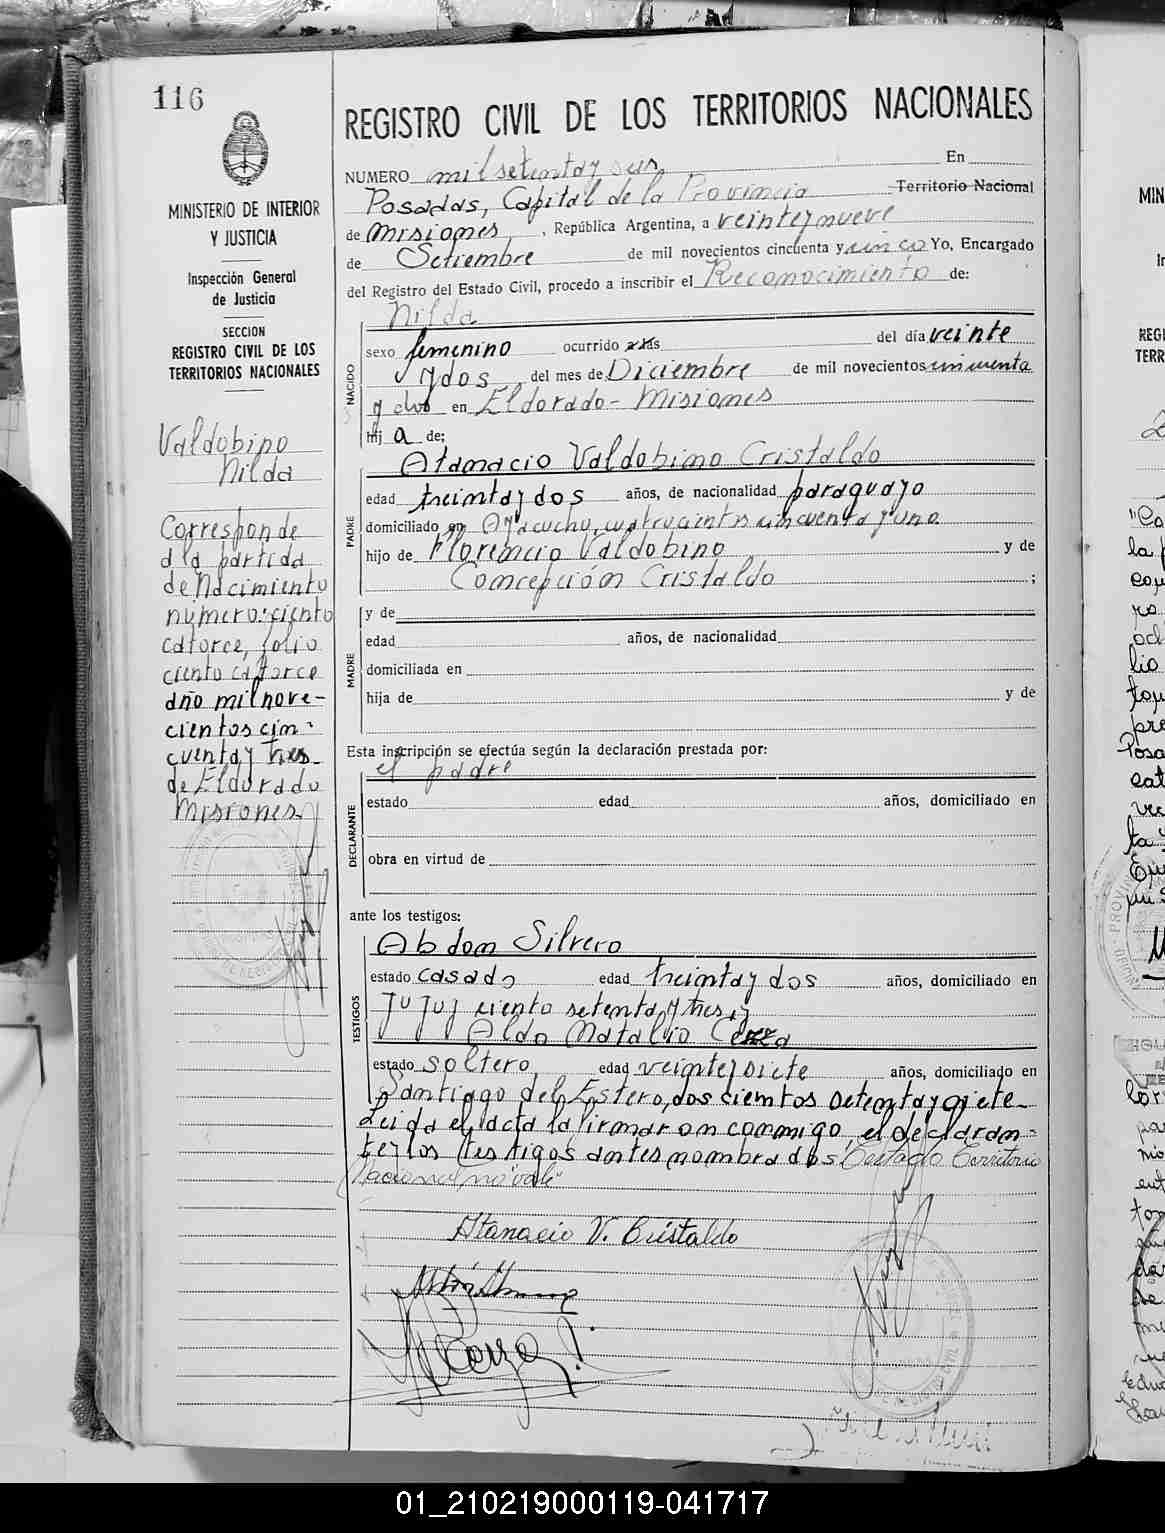 116
MINISTERIO DE INTERIOR
Y JUSTICIA
Inspección General
de Justicia
SECCION
REGISTRO CIVIL DE LOS
TERRITORIOS NACIONALES
Valdobino
Nilda
Corresponde
a la partida
de Nacimiento
número: ciento
catorce, folio
ciento catorce
año mil nove-
cientos cin-
cuenta y tres
de Eldorado
Misiones
REGISTRO CIVIL DE LOS TERRITORIOS NACIONALES
NUMERO mil setenta y seis En
Posadas, Capital de la Provincia Territorio Nacional
de Misiones, República Argentina, a veintey nueve
de Setiembre de mil novecientos cincuenta y cinco Yo, Encargado
del Registro del Estado Civil, procedo a inscribir el Reconocimiento de:
NACIDO
Nilda
sexo femenino ocurrido a las del día veinte
y dos del mes de Diciembre de mil novecientos cincuenta
y dos en Eldorado - Misiones
hij a de;
PADRE
Atanacio Valdobino Cristaldo
edad treinta y dos años, de nacionalidad paraguayo
domiciliado en Ayacucho, cuatrocientos cincuenta y uno
hijo de Florencio Valdobino y de
Concepción Cristaldo ;
MADRE
y de
edad años, de nacionalidad
domiciliada en
hija de y de
Esta inscripción se efectúa según la declaración prestada por:
el padre
DECLARANTE
estado edad años, domiciliado en
obra en virtud de
ante los testigos:
TESTIGOS
Abdon Silvero
estado casado edad treinta y dos años, domiciliado en
Jujuy ciento setenta y tres, y
Aldo Natalio
estado soltero, edad veinte y siete años, domiciliado en
Santiago del Estero, dos cientos setenta y siete-
Leida el acta la firmaron conmigo, el declaran-
te y los testigos antes nombrados "Testado Territorio
Nacional no vale"
Atanacio V. Cristaldo
01_210219000119-041717